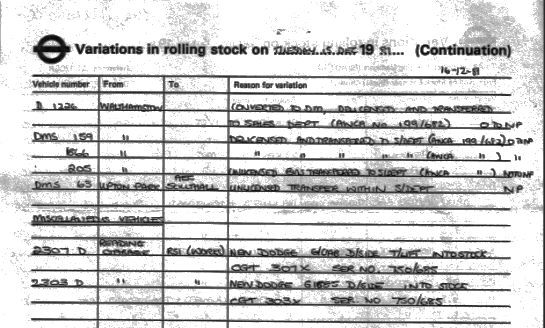 Variations in rolling stock on TUESDAY 15 DEC 19 81... (Continuation)
16-12-81
Vehicle number From To Reason for variation
D 1226 WALTHAMSTOW CONVERTED TO DM, DELICENSED AND TRANSFERRED
TO SALES DEPT (ANCA NO 199/682) O TO NP
DMS 159 " DELICENSED AND TRANSFERRED TO S/DEPT (ANCA 199/682) O TO NP
1566 " " " " " " (ANCA " ) "
205 " UNLICENSED BUS TRANSFERRED TO S/DEPT (ANCA " )
DMS 63 UPTON PARK AEC SOUTHALL UNLICENSED TRANSFER WITHIN S/DEPT NP
MISCELLANEOUS VEHICLES
2307 D READING GARAGE RSI (WORKS) NEW DODGE G/CAB D/SIDE T/LIFT INTO STOCK
CGT 307X SER NO. 750/685
2303 D " " NEW DODGE INTO STOCK
CGT 303X SER NO 750/685